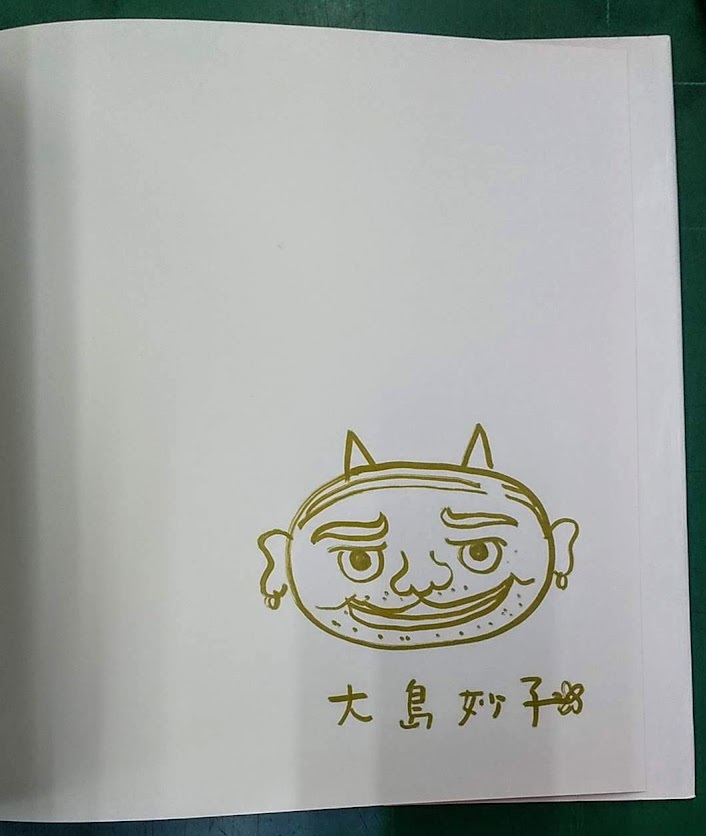 大島妙子